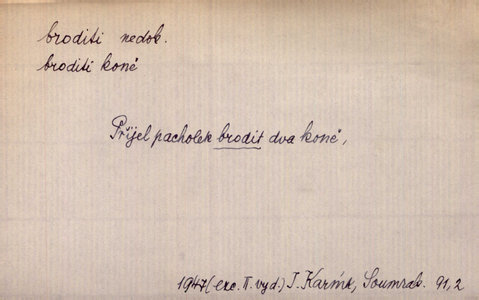 broditi nedok.
broditi koně
Přijel pacholek brodit dva koně,
1947 (exc. II. vyd.) J. Karník, Soumrak. 91,2